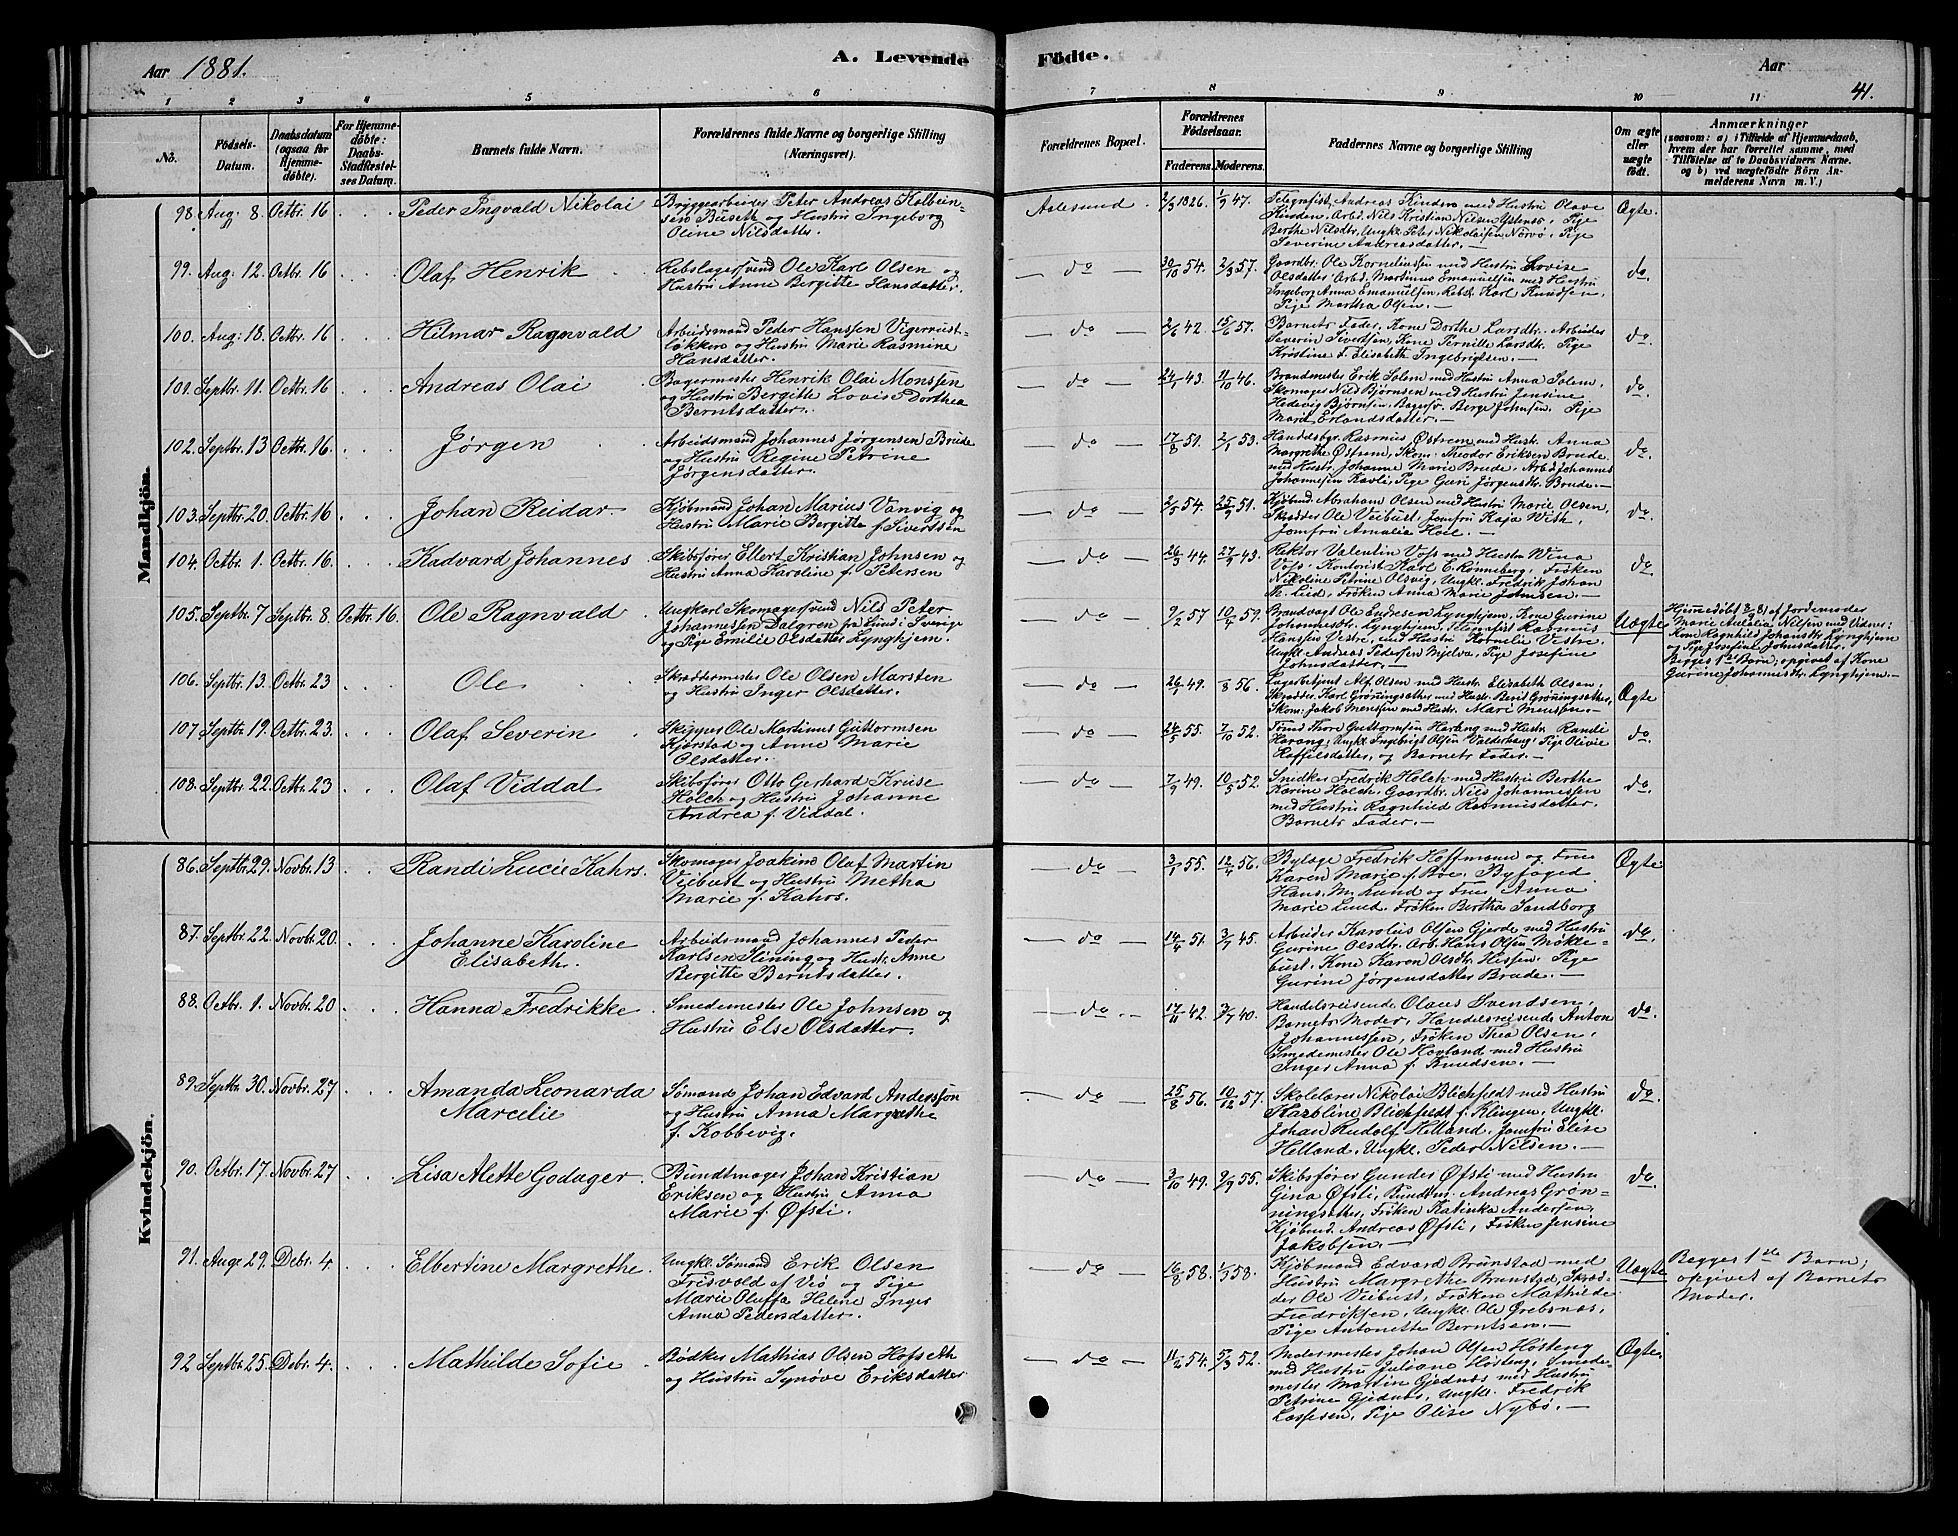 Aar 1881.
A. Levende
Födte.
Aar
41.
1 2 3 4 5 6 7 8 9 10 11
No.
Födsels-
Datum.
Daabsdatum
(ogsaa for
Hjemme-
döbte).
For Hjemme-
döbte:
Daabs-
Stadfæstel-
ses Datum.
Barnets fulde Navn.
Forældrenes fulde Navne og borgerlige Stilling
(Næringsvei).
Forældrenes Bopæl.
Forældrenes
Födselsaar.
Faderens. Moderens.
Faddernes Navne og borgerlige Stilling
Om ægte
eller
uægte
födt.
Anmærkninger
(saasom: a) i Tilfælde af Hjemmedaab,
hvem der har forrettet samme, med
Tilföielse af to Daabsvidners Navne.
og b) ved uægtefödte Börn An-
melderens Navn m. V.)
Mandkjön.
98. Aug: 8. Octbr. 16
Peder Ingvald Nikolai
Bryggearbeider Peter Andreas Kolbein-
sen Buseth og Hustru Ingeborg
Oline Nilsdatter.
Aalesund
2/3 1826. 1/3 47.
Telegrafist Andreas Kinden med Hustru Olave
Kinden, Arbd. Nils Kristian Nilsen Ystenes, Pige
Berthe Nilsdtr, Ungkl. Peter Nikolaisen Nörvö, Pige
Severine Andreasdatter.
Ægte.
99. Aug: 12. Octbr. 16
Olaf Henrik
Rebslagersvend Ole Karl Olsen og
Hustru Anne Bergitte Hansdatter.
do
30/10 54. 2/3 57.
Gaardbr. Ole Korneliussen med Hustru Lovise
Olsdatter, Arbd. Martinus Emanuelsen med Hustru
Ingeborg Anna Emanuelsen, Rebsl. Karl Knudsen,
Pige Martha Olsen.
do.
100. Aug: 18. Octbr. 16
Hilmar Ragnvald
Arbeidsmand Peder Hanssen Vigernust-
løkken og Hustru Marie Rasmine
Hansdatter.
do
2/6 42. 15/6 57.
Barnets Fader, Kone Dorthe Larsdtr. Arbeider
Severin Sivertsen, Kone Pernille Larsdtr. Pige
Kristine F. Elisabeth Ingebrigtsen.
do.
101. Septbr. 11. Octbr. 16
Andreas Olai
Bagermester Henrik Olai Monssen
og Hustru Bergitte Lovise Dorthea
Berntsdatter.
do
24/1 43. 11/10 46.
Brandmester Erik Solem med Hustru Anna Solem,
Skomager Nils Bjørnsen med Hustru Jensine
Hedevig Bjørnsen, Bagersv. Berge Johnsen, Pige
Marit Erlandsdatter.
do.
102. Septbr. 13 Octbr. 16.
Jørgen
Arbeidsmand Johannes Jørgensen Brude
og Hustru Regine Petrine
Jørgensdatter.
do
17/8 51. 2/1 53.
Handelsbgr. Rasmus Østrem med Hustr. Anna
Margrethe Østrem, Skom. Theodor Eriksen Brude
med Hustr. Johanne Marie Brude, Arbd. Johannes
Johannesen Kavli, Pige Guri Jørgensdtr. Brude.
do.
103. Septbr. 20. Octbr. 16
Johan Reidar
Kjøbmand Johan Marius Vanvig og
Hustru Marie Bergitte f. Sivertsen
do
2/5 54. 25/9 51.
Kjøbmd. Abraham Olsen med Hustru Marie Olsen,
Skrædder Ole Veibust, Jomfru Kaja With,
Jomfru Amalia Hoel.
do.
104. Octbr. 1. Octbr. 16.
Kadvard Johannes
Skibsfører Ellert Kristian Johnsen og
Hustru Anna Karoline f. Petersen
do
26/3 44. 27/9 43.
Rektor Valentin Voss med Hustru Wina
Voss, Kontorist Karl E. Rønneberg, Frøken
Nikoline Petrine Olsvig, Ungkl. Fredrik Johan
M. Lied, Frøken Anna Marie Johnsen.
do
105. Septbr. 7 Septbr. 8 Octbr. 16.
Ole Ragnvald
Ungkarl Skomagersvend Nils Peter
Johannessen Dalgren fra Lund i Sverige
og Pige Emilie Olsdatter Lynghjem.
do
9/2 57 10/4 59.
Brandvagt Ole Endresen Lynghjem, Kone Gurine
Johannesdtr. Lynghjem, Rasmus
Hanssen Vestre, med Hustru Kornelia Vestre,
Ungkl. Andreas Pedersen Mjelva, Pige Josefine
Johnsdatter.
Uægte
Hjemmedøbt 8/9 81 af Jordemoder
Marie Amalia Nilsen med Vidner:
Kone Ragnhild Johansdtr. Lynghjem
og Pige Josefine Johnsdatter.
Begges 1ste Barn; opgivet af Kone
Gurine Johannesdtr. Lynghjem.
106. Septbr. 13. Octbr. 23
Ole
Skræddermester Ole Olsen Marsten
og Hustru Inger Olsdatter.
do
26/1 49. /8 56.
Lagerbetjent Alf Olsen med Hustr. Elisabeth Olsen,
Skrædder Karl Grøningsæther med Hustr. Berit Grøningsæther,
Skom. Jakob Monssen med Hustr. Mari Monssen.
Ægte
107 Septbr. 19. Octbr. 23.
Olaf Severin
Skipper Ole Martinus Guttormsen
Kjerstad og Anne Marie
Olsdatter.
do
24/5 55. 7/10 52.
Tømd. Thore Guttormsen Harang med Hustr. Randi
Harang, Ungkl. Ingebrigt Olsen Valderhaug, Pige Olivie
Roffelsdatter, og Barnets Fader.
do.
108. Septbr. 22. Octbr. 23
Olaf Viddal
Skibsfører Otto Gerhard Kruse
Holck og Hustru Johanne
Andrea f. Viddal.
do
7/9 49. 10/5 52.
Snidker Fredrik Holck med Hustru Berthe
Karine Holck, Gaardbr. Nils Johannessen
med Hustru Ragnhild Rasmusdatter.
Barnets Fader.
do.
Kvindekjön.
86. Septbr. 29. Novbr. 13
Randi Lucie Kahrs.
Skomager Joakim Olaf Martin
Veibust og Hustru Metha
Marie f. Kahrs.
do
3/1 55. 12/4 56.
Bylæge Fredrik Hoffmann og Frue
Karen Marie f. Boe, Byfoged
Hans M. Lund og Frue Anna
Marie Lund, Frøken Bertha Sandborg
Ægte
87. Septbr. 22. Novbr. 20.
Johanne Karoline
Elisabeth.
Arbeidsmand Johannes Peder
Karlsen Slining og Hustr. Anne
Bergitte Berntsdatter.
do
14/4 51. 3/7 45.
Arbeider Karolius Olsen Gjerde med Hustru
Gurine Olsdtr. Arb. Hans Olsen Møkle-
bust, Kone Karen Olsdtr. Hessen, Pige
Gurine Jørgensdatter Brude.
do.
88. Octbr. 1. Novbr. 20
Hanna Fredrikke
Smedemester Ole Johnsen og
Hustru Else Olsdatter.
do.
17/11 42. 3/7 40.
Handelsreisende Olaus Svendsen,
Barnets Moder, Handelsreisende Anton
Johannessen, Frøken Thea Olsen,
Smedemester Ole Hovland med Hustru
Inger Anna f. Knudsen.
do.
89. Septbr. 30. Novbr. 27
Amanda Leonarda
Marcelie
Sømand Johan Edvard Anderssøn
og Hustru Anna Margrethe
f. Kobbevig.
do
25/8 56. 10/12 57.
Skolelærer Nikolai Blichfeldt med Hustru
Karoline Blichfeldt f. Klingen, Ungkl.
Johan Rudolf Helland, Jomfru Elise
Helland, Ungkl. Peder Nilsen.
do.
90. Octbr. 17. Novbr. 27
Lisa Alette Godager
Bundtmager Johan Kristian
Eriksen og Hustru Anna
Marie f. Øfsti.
do
3/10 49. 9/9 55.
Skibsfører Gunder Øfsti med Hustru
Gina Øfsti, Bundtm. Andreas Grøn-
ningsæther, Frøken Katinka Andersen,
Kjøbmd. Andreas Øfsti, Frøken Jensine
Jakobsen.
do.
91. Aug: 29. Debr. 4
Elbertine Margrethe.
Ungkl. Sømand Erik Olsen
Fresvold af Veø og Pige
Marie Oluffa Helene Inger
Anna Pedersdatter.
do
16/8 58. 1/3 58.
Kjøbmand Edvard Brunstad med
Hustru Margrethe Brunstad, Skræd-
der Ole Veibust, Frøken Mathilde
Fredriksen, Ungkl. Ole Grebsnæs,
Pige Antonette Berntsen.
Uægte
Begges 1ste Barn;
opgivet af Barnets
Moder.
92 Septbr. 25. Debr. 4.
Mathilde Sofie
Bødker Mathias Olsen Hofseth
og Hustru Synøve Eriksdatter
do
11/2 54. 5/3 52.
Malermester Johan Olsen Høsteng
med Hustru Juliane Høsteng, Smede-
mester Martin Gjednæs med Hustru
Petrine Gjednæs, Ungkl. Fredrik
Lassesen, Pige Olise Nybø.
Ægte.